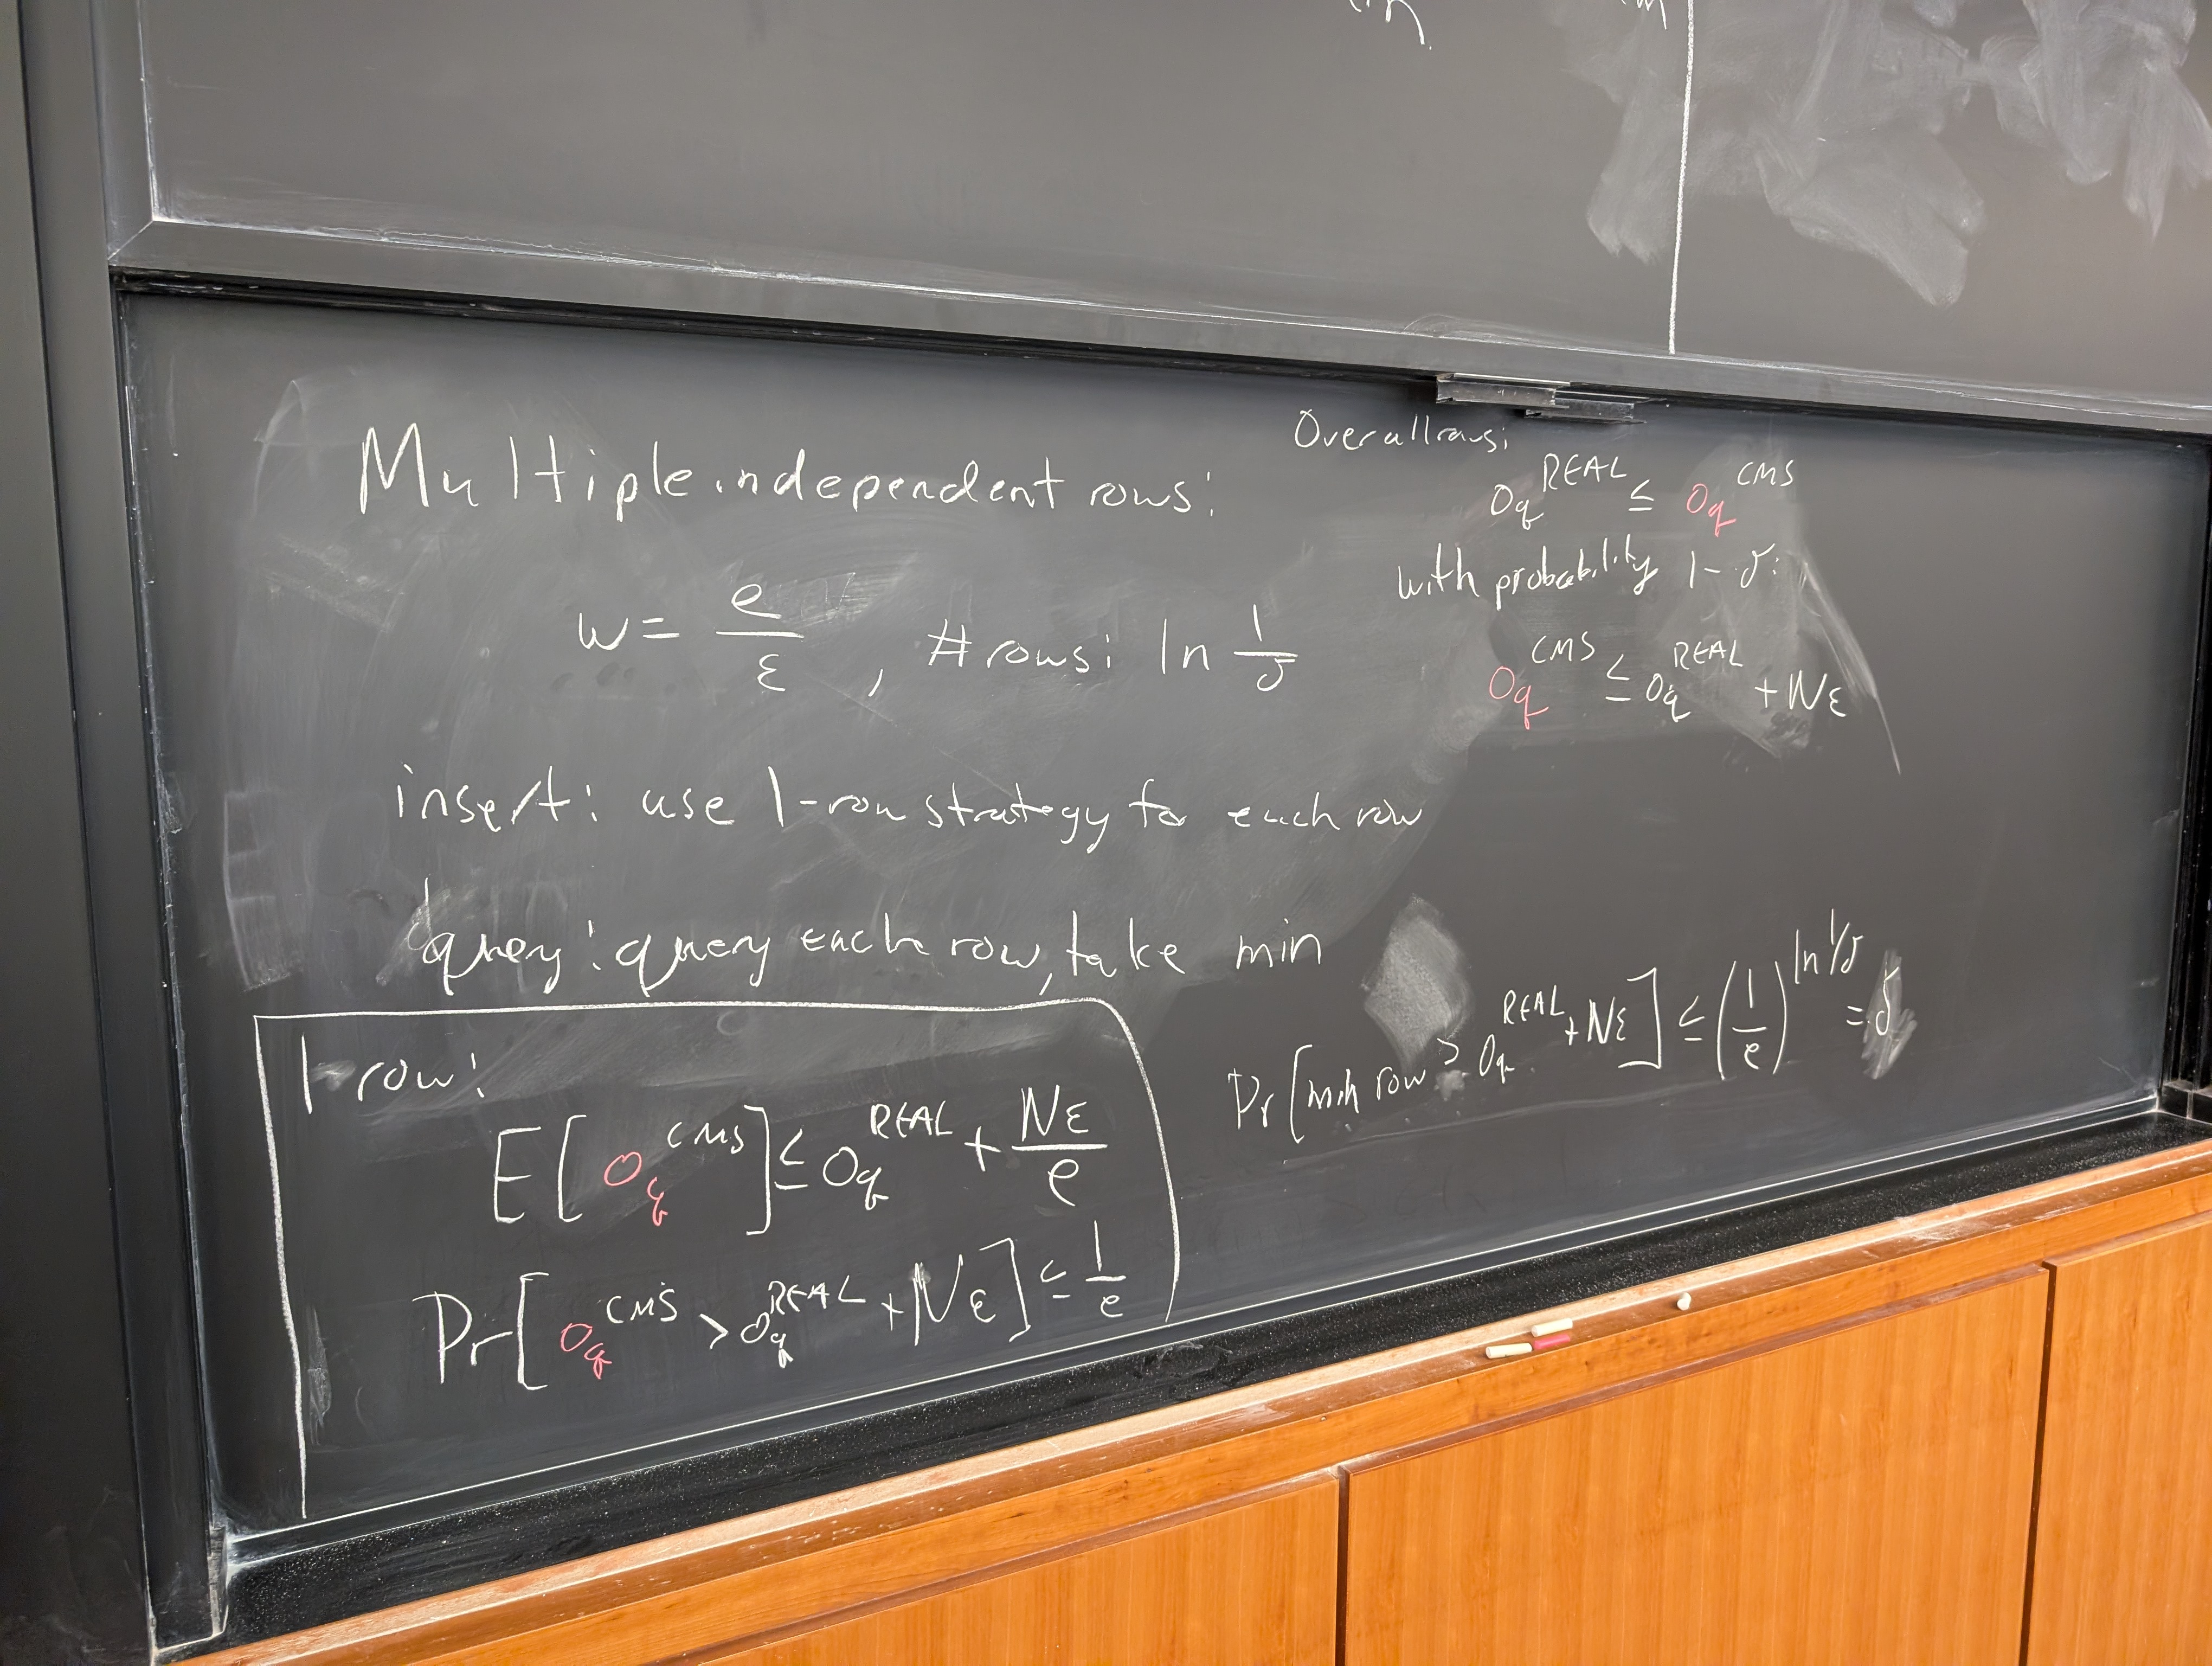 Multiple independent rows:
w = e/ε, # rows: ln 1/δ
insert: use 1-row strategy for each row
query: query each row, take min
1-row:
E[o_q^CMS] ≤ o_q^REAL + Nε/e
Pr[o_q^CMS > o_q^REAL + Nε] ≤ 1/e
Over all rows:
o_q^REAL ≤ o_q^CMS
with probability 1-δ:
o_q^CMS ≤ o_q^REAL + Nε
Pr[min row > o_q^REAL + Nε] ≤ (1/e)^(ln 1/δ) = δ